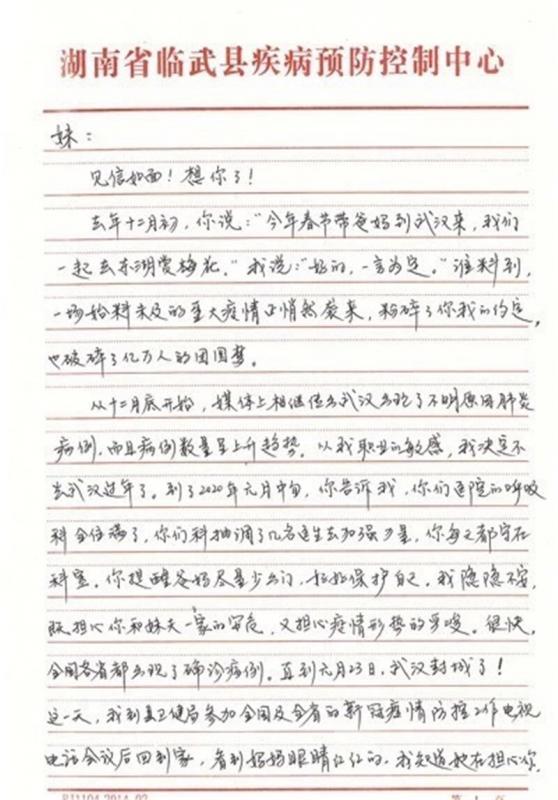 湖南省临武县疾病预防控制中心
妹：
见信如面！想你了！
去年十二月初，你说："今年春节带爸妈到武汉来，我们
一起去东湖赏梅花。"我说："好的，一言为定。"谁料到，
一场始料未及的重大疫情正悄然袭来，粉碎了你我的约定，
也破碎了亿万人的团圆梦。
从十二月底开始，媒体上相继传出武汉出现了不明原因肺炎
病例，而且病例数量呈上升趋势。以我职业的敏感，我决定不
去武汉过年了。到了2020年元月中旬，你告诉我，你们医院的呼吸
科全住满了，你们科抽调了几名医生去加强力量，你每天都守在
科室。你提醒爸妈尽量少出门，好好保护自己。我隐隐不安，
既担心你和妹夫一家的安危，又担心疫情形势的严峻。很快，
全国各省都出现了确诊病例。直到元月23日，武汉封城了！
这一天，我到县卫健局参加全国及全省的新冠疫情防控工作电视
电话会议后回到家，看到妈妈眼睛红红的，我知道她在担心你。